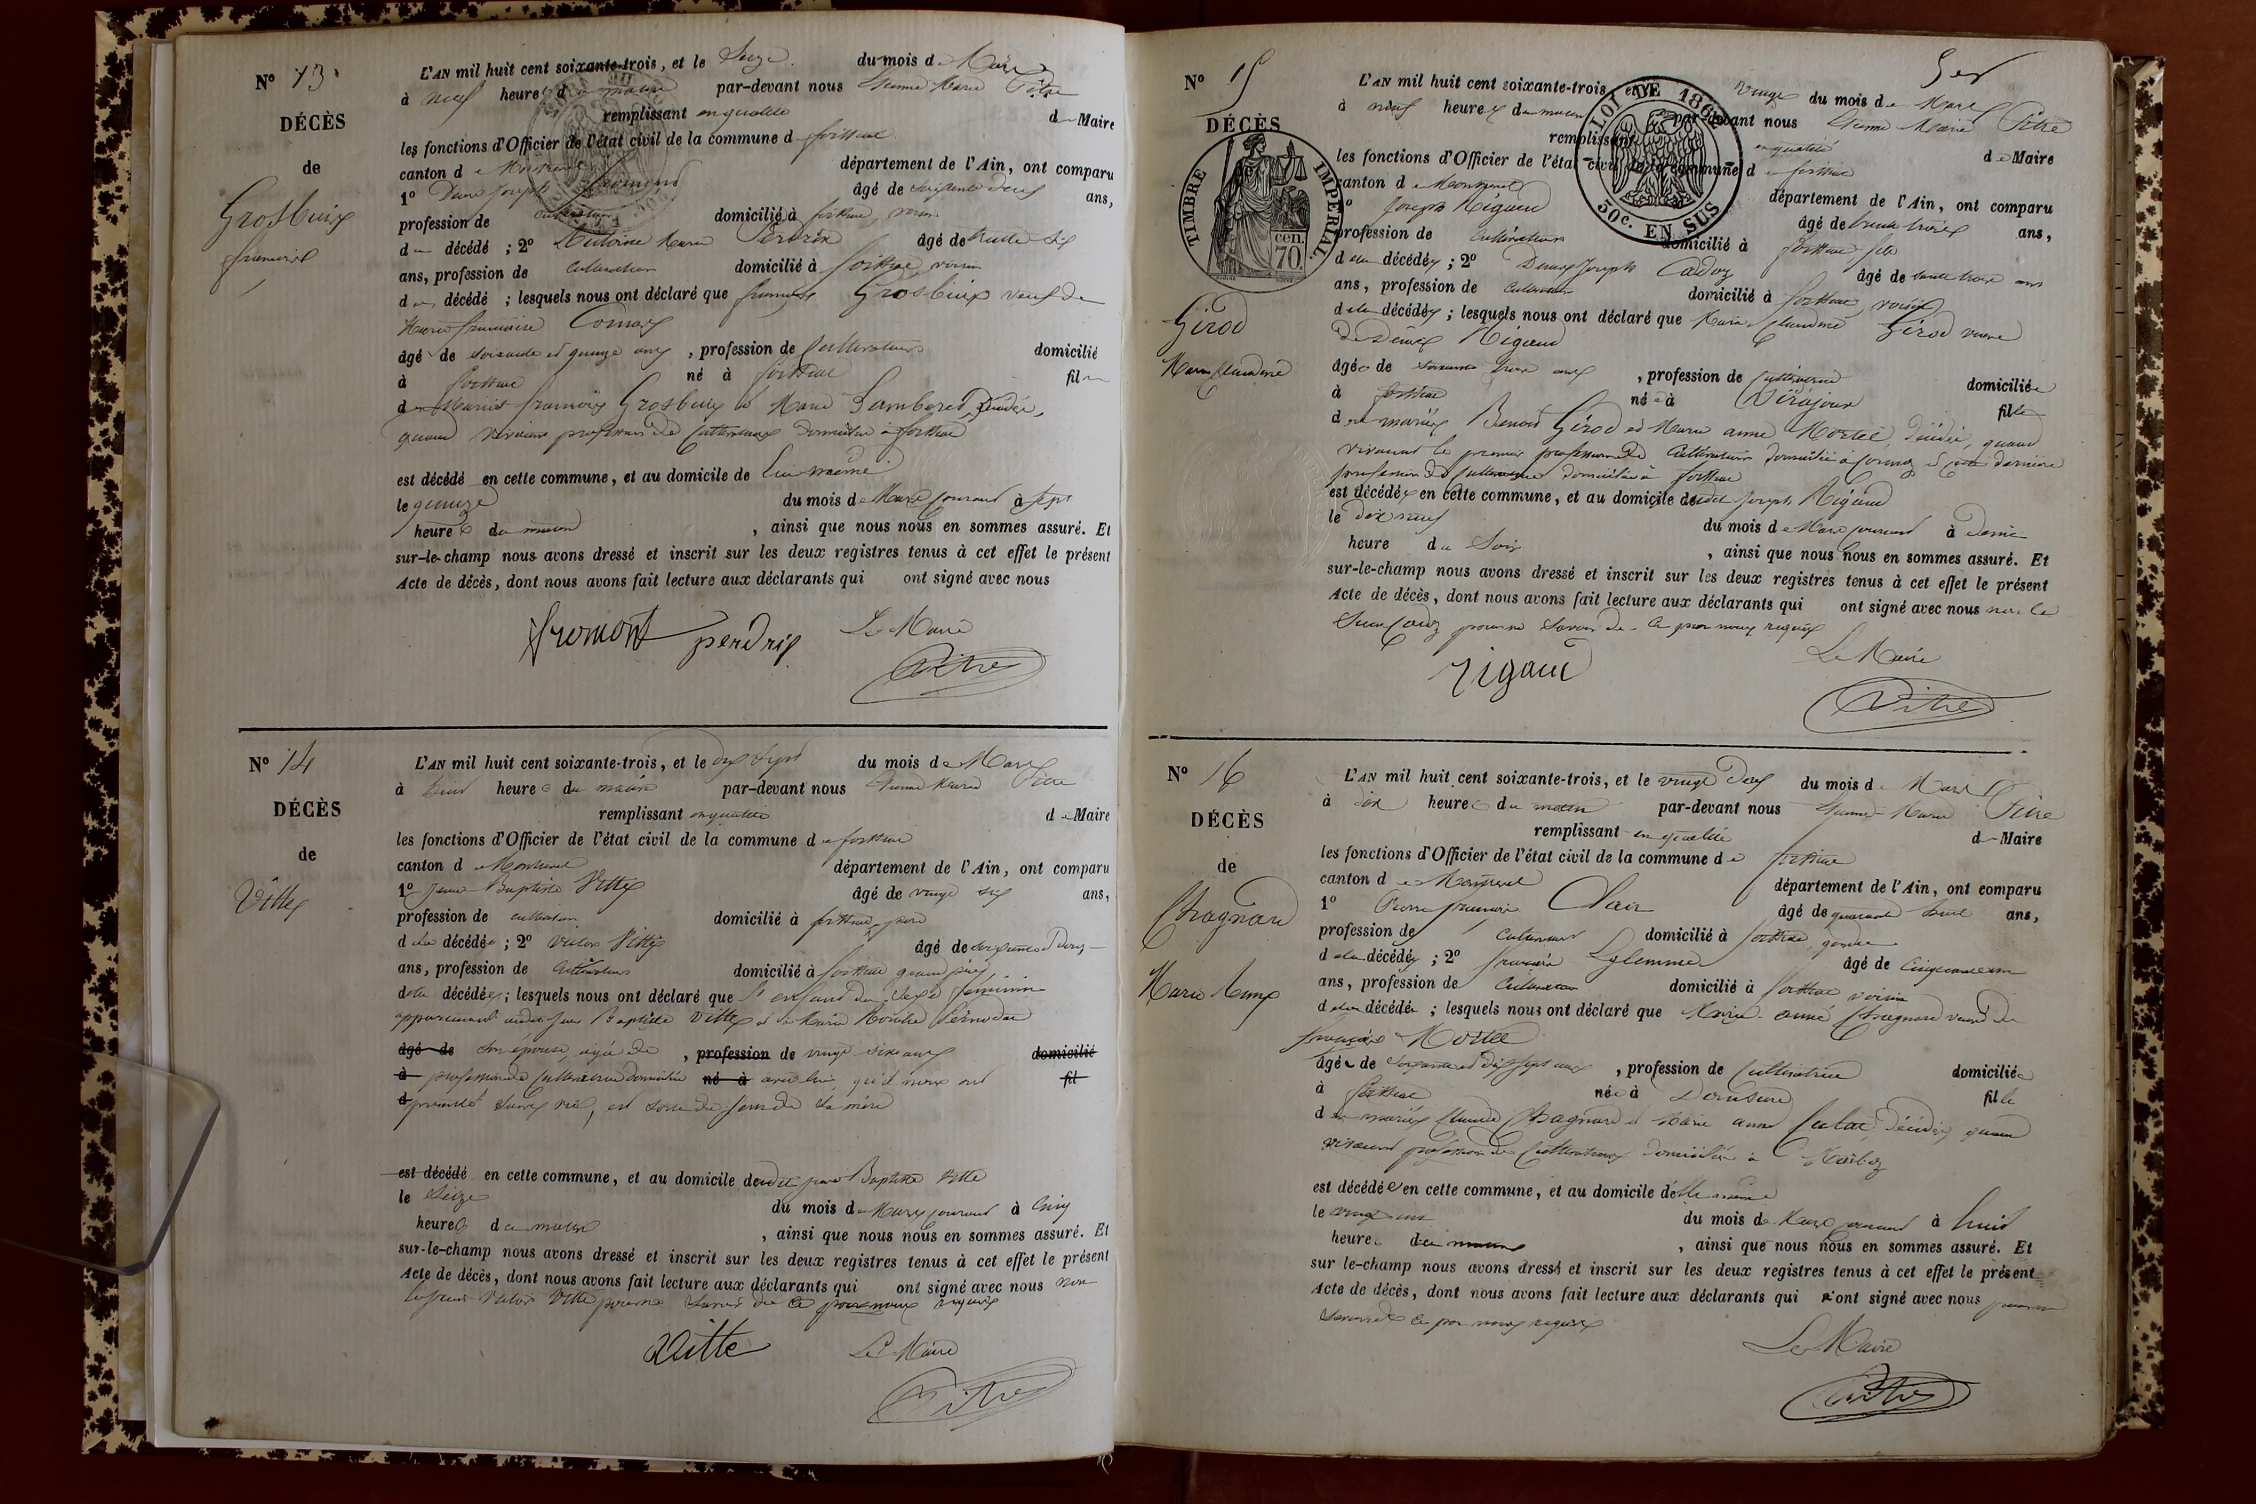 N° 13
DÉCÈS
de
Grosbuis
françois
L'AN mil huit cent soixante-trois, et le Seize du mois de Mars
à neuf heures du matin par-devant nous Etienne Marie Pitre
remplissant en qualité de Maire
les fonctions d'Officier de l'état civil de la commune d
canton de Montrevel département de l'Ain, ont comparu
1° Denis Joseph Fromont âgé de soixante deux ans,
profession de cultivateur domicilié à voisin
du décédé ; 2° Antoine Marie Perdrix âgé de trente six
ans, profession de cultivateur domicilié à voisin
du décédé ; lesquels nous ont déclaré que françois Grosbuis veuf de
Marie françoise
âgé de soixante et quinze ans, profession de Cultivateur domicilié
à né à fils
de mariés françois Grosbuis et Marie Lamberet, décédés,
quand vivaient profession de Cultivateurs domiciliés à
est décédé en cette commune, et au domicile de lui même
le quinze du mois de Mars courant à sept
heures du matin, ainsi que nous nous en sommes assuré. Et
sur-le-champ nous avons dressé et inscrit sur les deux registres tenus à cet effet le présent
Acte de décès, dont nous avons fait lecture aux déclarants qui ont signé avec nous
fromont perdrix Le Maire
Pitre
N° 14
DÉCÈS
de
Vitte
L'AN mil huit cent soixante-trois, et le dix sept du mois de Mars
à heures du matin par-devant nous Etienne Marie Pitre
remplissant en qualité de Maire
les fonctions d'Officier de l'état civil de la commune de
canton de Montrevel département de l'Ain, ont comparu
1° Jean Baptiste Vitte âgé de vingt six ans,
profession de cultivateur domicilié à père
de la décédée ; 2° Victor Vitte âgé de soixante et
ans, profession de Cultivateur domicilié à grand père
de la décédée ; lesquels nous ont déclaré que l'enfant du sexe féminin
appartenant audit Jean Baptiste Vitte et à Marie
âgé de son épouse, âgée de, profession de vingt six ans domicilié
à profession de Cultivatrice domiciliée né à avec lui, qu'il nous ont fil
d présenté sans vie, est sorti du sein de sa mère
est décédé en cette commune, et au domicile dudit Jean Baptiste Vitte
le Seize du mois de Mars courant à cinq
heures du matin, ainsi que nous nous en sommes assuré. Et
sur-le-champ nous avons dressé et inscrit sur les deux registres tenus à cet effet le présent
Acte de décès, dont nous avons fait lecture aux déclarants qui ont signé avec nous non
le sieur Victor Vitte pour ne savoir de ce par nous requis
Vitte Le Maire
Pitre
N° 15
DÉCÈS
TIMBRE IMPÉRIAL
70 cen.
LOI DE 1862
50c. EN SUS
Girod
Marie Claudine
L'AN mil huit cent soixante-trois, et le Vingt du mois de Mars
à neuf heures du matin par-devant nous Etienne Marie Pitre
remplissant en qualité de Maire
les fonctions d'Officier de l'état civil de la commune de
canton de Montrevel département de l'Ain, ont comparu
1° Joseph Rigaud âgé de trente trois ans,
profession de Cultivateur domicilié à fils
de la décédée ; 2° Denis Joseph Cadoz âgé de
ans, profession de Cultivateur domicilié à voisin
de la décédée ; lesquels nous ont déclaré que Marie Claudine Girod veuve
de Denis Rigaud
âgée de soixante trois ans, profession de Cultivatrice domiciliée
à née à Viriat fille
de mariés Benoit Girod et Marie anne Mortel, décédés, quand
vivaient le premier profession de Cultivateur domicilié à et cette dernière
profession de Cultivatrice domiciliée à
est décédée en cette commune, et au domicile dudit Joseph Rigaud
le Dix neuf du mois de Mars courant à demi
heure du Soir, ainsi que nous nous en sommes assuré. Et
sur-le-champ nous avons dressé et inscrit sur les deux registres tenus à cet effet le présent
Acte de décès, dont nous avons fait lecture aux déclarants qui ont signé avec nous non le
Sieur Cadoz pour ne savoir de ce par nous requis
rigaud Le Maire
Pitre
N° 16
DÉCÈS
de
Chagnard
Marie Anne
L'AN mil huit cent soixante-trois, et le vingt deux du mois de Mars
à dix heures du matin par-devant nous Etienne Marie Pitre
remplissant en qualité de Maire
les fonctions d'Officier de l'état civil de la commune de
canton de Montrevel département de l'Ain, ont comparu
1° Pierre françois Clair âgé de quarante huit ans,
profession de Cultivateur domicilié à gendre
de la décédée ; 2° françois âgé de cinquante un
ans, profession de Cultivateur domicilié à voisin
de la décédée ; lesquels nous ont déclaré que Marie anne Chagnard veuve de
françois Mortel
âgée de soixante et dix sept ans, profession de Cultivatrice domiciliée
à née à Domsure fille
de mariés Claude Chagnard et Marie anne, décédés, quand
vivaient profession de Cultivateurs domiciliés à
est décédée en cette commune, et au domicile d'elle même
le vingt un du mois de Mars courant à huit
heures du matin, ainsi que nous nous en sommes assuré. Et
sur le-champ nous avons dressé et inscrit sur les deux registres tenus à cet effet le présent
Acte de décès, dont nous avons fait lecture aux déclarants qui n'ont signé avec nous pour ne
savoir de ce par nous requis
Le Maire
Pitre